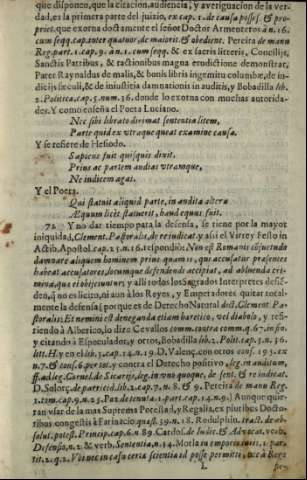 que disponeo, que la citacion, audiencia, y averiguacion de la ver-
dad, es la primera parte del juizio, ex cap. 1. de causa posses. & pro-
priet. que exorna doctamente el señor Doctor Armenteros à n. 16.
cum seqq. cap. inter quatuor de maiorit. & obedient. Pereira de manu
Reg. part. 1. cap. 9. à n. 1. cum seqq. & ex sacris literis, Concilijs,
Sanctis Patribus, & rationibus magna eruditione demonstrat,
Pater Raynaldus de malis, & bonis libris ingenitu columbæ, de in-
dicijs sæculi, & de iniustitia damnationis in auditis, y Bobadilla lib.
2. Politica, cap. 3. num. 16. donde lo exorna con muchas autorida-
des. Y como enseña el Poeta Luciano.
Nec sibi librato dirimat sententia litem,
Parte quid ex utraque queat examine causa.
Y se refiere de Hesiodo.
Sapiens fuit quisquis dixit.
Prius ac partem audias utramque,
Ne iudicem agas.
Y el Poeta.
Qui statuit aliquid parte, in audita altera
Æquum licet statuerit, haud equus fuit.
72 Y no dar tiempo para la defensa, se tiene por la mayor
iniquidad, Clement. Pastoralis, de re iudicat. y assi el Virrey Festo in
Actib. Apostol. cap. 25. n. 16. respondiò: Non est Romanis consuetudo
damnare aliquem hominem prius quam is, qui accusatur præsentes
habeat accusatores, locumque defendendi accipiat, ad abluenda cri-
mina, que ei obijciuntur; y alli todos los Sagrados Interpretes defiē-
dē, q̄ no es licito, ni aun à los Reyes, y Emperadores quitar total-
mente la defensa; porque es de Derecho Natural dict. Clement. Pa-
storalis. Et nemini est deneganda etiam hæretico, vel diabolo, y refi-
riendo à Alberico, lo dize Cevallos comm. contra comm. q. 67. in fin.
y citando à Especulador, y otros, Bobadilla lib. 2. Polit. cap. 3. n. 16.
litt. H. y en el lib. 3. cap. 14. n. 19. D. Valenç. con otros cons. 193. ex
n. 7. & cons. 6 per tot. y contra el Derecho positivo, leg. in auditum,
ff. ad leg. Cornel. de Sicarijs, leg. in uno quoque, de sent. & re iudicat.
D. Solorç. de parricid. lib. 2. cap. 7. n. 8. & 9. Pereira de manu Reg.
1. tom. cap. 9. n. 25. Paz de tenuta 1. part. cap. 14. n. 9. Aunque quie-
ran usar de la mas Suprema Potestad, y Regalia, ex pluribus Docto-
ribus congestis à Farinacio quæst. 39. n. 18. Rodulphin. tract. de ab-
solut. potest. Princip. cap. 6. n. 89. Cardos. de Iudic. & Advocat. verb.
Defensio, n. 2. & verb. Sententia, n. 14. Morla in emporio iuris, 1. par-
tit. 2. q. 2. Vt enim in causa certa scientia id posse permitti, nec à Rege
L